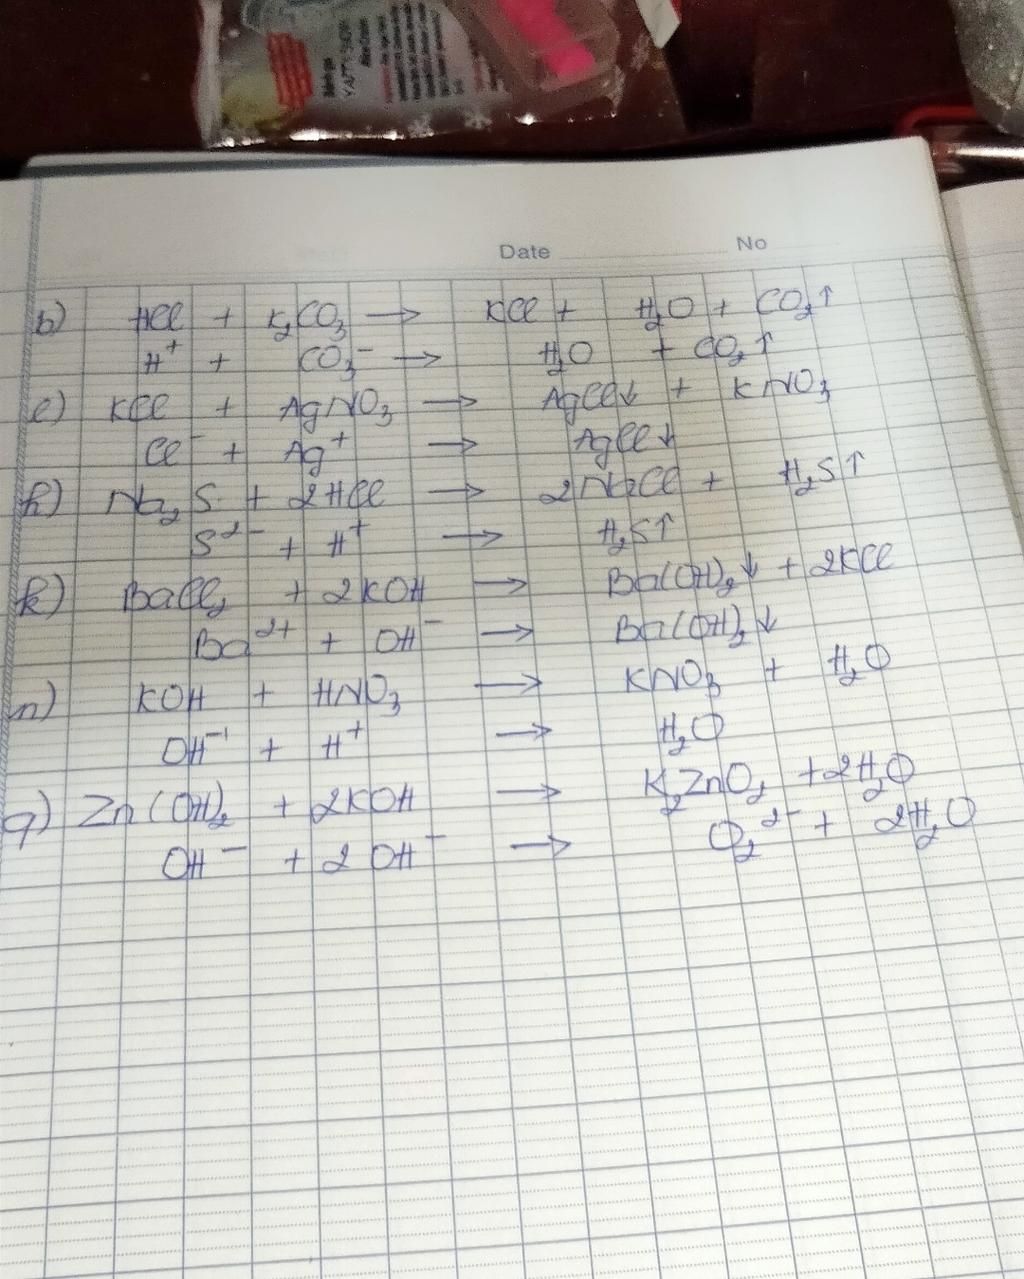 Date No
b) HCl + K₂CO₃ → KCl + H₂O + CO₂↑
H⁺ + CO₃⁻ → H₂O + CO₂↑
e) KCl + AgNO₃ → AgCl↓ + KNO₃
Cl⁻ + Ag⁺ → AgCl↓
h) Na₂S + 2HCl → 2NaCl + H₂S↑
S²⁻ + H⁺ → H₂S↑
k) BaCl₂ + 2KOH → Ba(OH)₂↓ + 2KCl
Ba²⁺ + OH⁻ → Ba(OH)₂↓
n) KOH + HNO₃ → KNO₃ + H₂O
OH⁻ + H⁺ → H₂O
q) Zn(OH)₂ + 2KOH → K₂ZnO₂ + 2H₂O
OH⁻ + 2OH⁻ → O₂²⁻ + 2H₂O